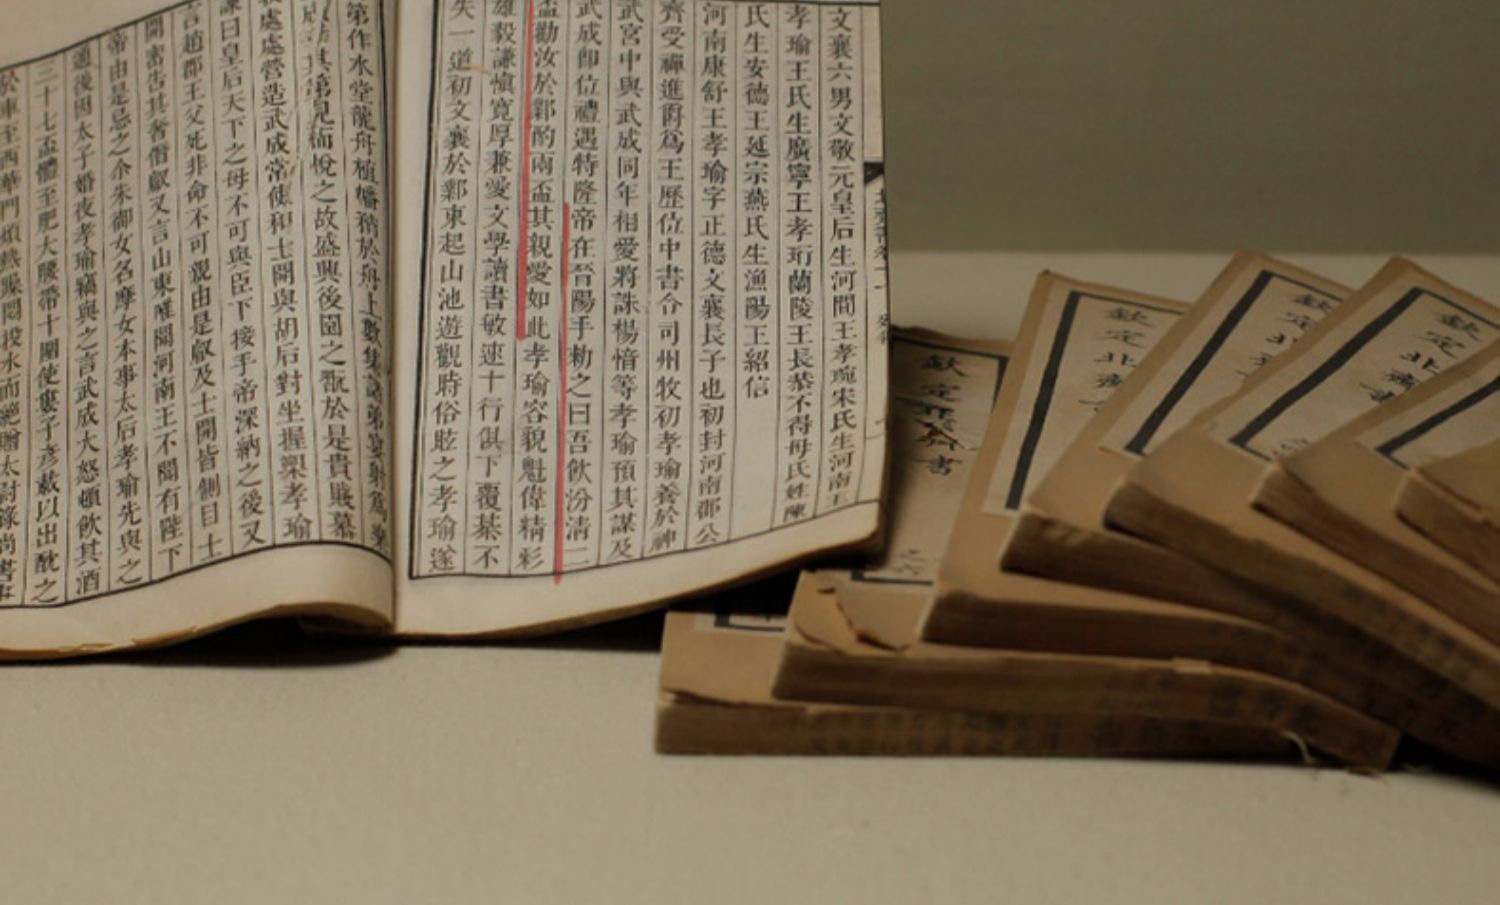 文襄六男文敬元皇后生河間王孝琬宋氏生河南王
孝瑜王氏生廣寧王孝珩蘭陵王長恭不得母氏姓陳
氏生安德王延宗燕氏生漁陽王紹信
河南康舒王孝瑜字正德文襄長子也初封河南郡公
齊受禪進爵爲王歷位中書令司州牧初孝瑜養於神
武宮中與武成同年相愛將誅楊愔等孝瑜預其謀及
武成卽位禮遇特隆帝在晉陽手勑之曰吾飲汾清二
盃勸汝於鄴酌兩盃其親愛如此孝瑜容貌魁偉精彩
雄毅謙愼寬厚兼愛文學讀書敏速十行俱下覆棊不
失一道初文襄於鄴東起山池遊觀時俗眩之孝瑜遂
第作水堂龍舟植幡矟於舟上數集諸弟宴射爲樂
武成幸其第見而悅之故盛興後園之翫於是貴賤慕
斅處處營造武成常使和士開與胡后對坐握槊孝瑜
諫曰皇后天下之母不可與臣下接手帝深納之後又
言趙郡王父死非命不可親由是叡及士開皆側目士
開密告其奢僭叡又言山東唯聞河南王不聞有陛下
帝由是忌之尒朱御女名摩女本事太后孝瑜先與之
通後因太子婚夜孝瑜竊與之言武成大怒頓飲其酒
三十七盃體至肥大腰帶十圍使婁子彥載以出酖之
於車至西華門煩熱躁悶投水而絕贈太尉錄尚書事
欽定北齊書
之六
欽定北齊
欽定北齊
欽定北齊書